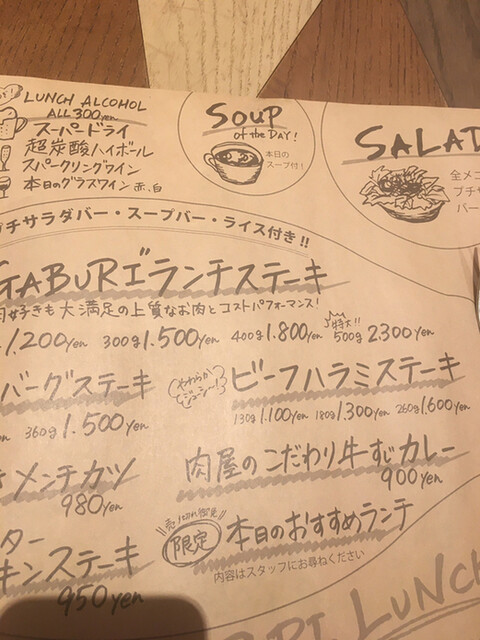 LUNCH ALCOHOL
ALL 300yen
スーパードライ
超炭酸ハイボール
スパークリングワイン
本日のグラスワイン 赤、白
SOUP
of the DAY!
本日の
スープ付!
SALAD
全メニ
プチサラ
バー
プチサラダバー・スープバー・ライス付き!!
GABURI ランチステーキ
肉好きも大満足の上質なお肉とコストパフォーマンス!
1.200yen 300g 1.500yen 400g 1.800yen 特大!! 500g 2.300yen
バーグステーキ
360g 1.500yen
やわらか
ジューシー!
ビーフハラミステーキ
130g 1.100yen 180g 1.300yen 260g 1.600yen
メンチカツ
980yen
肉屋のこだわり牛すじカレー
900yen
ター
キンステーキ
950yen
売り切れ御免
限定
本日のおすすめランチ
内容はスタッフにお尋ねください
LUNCH